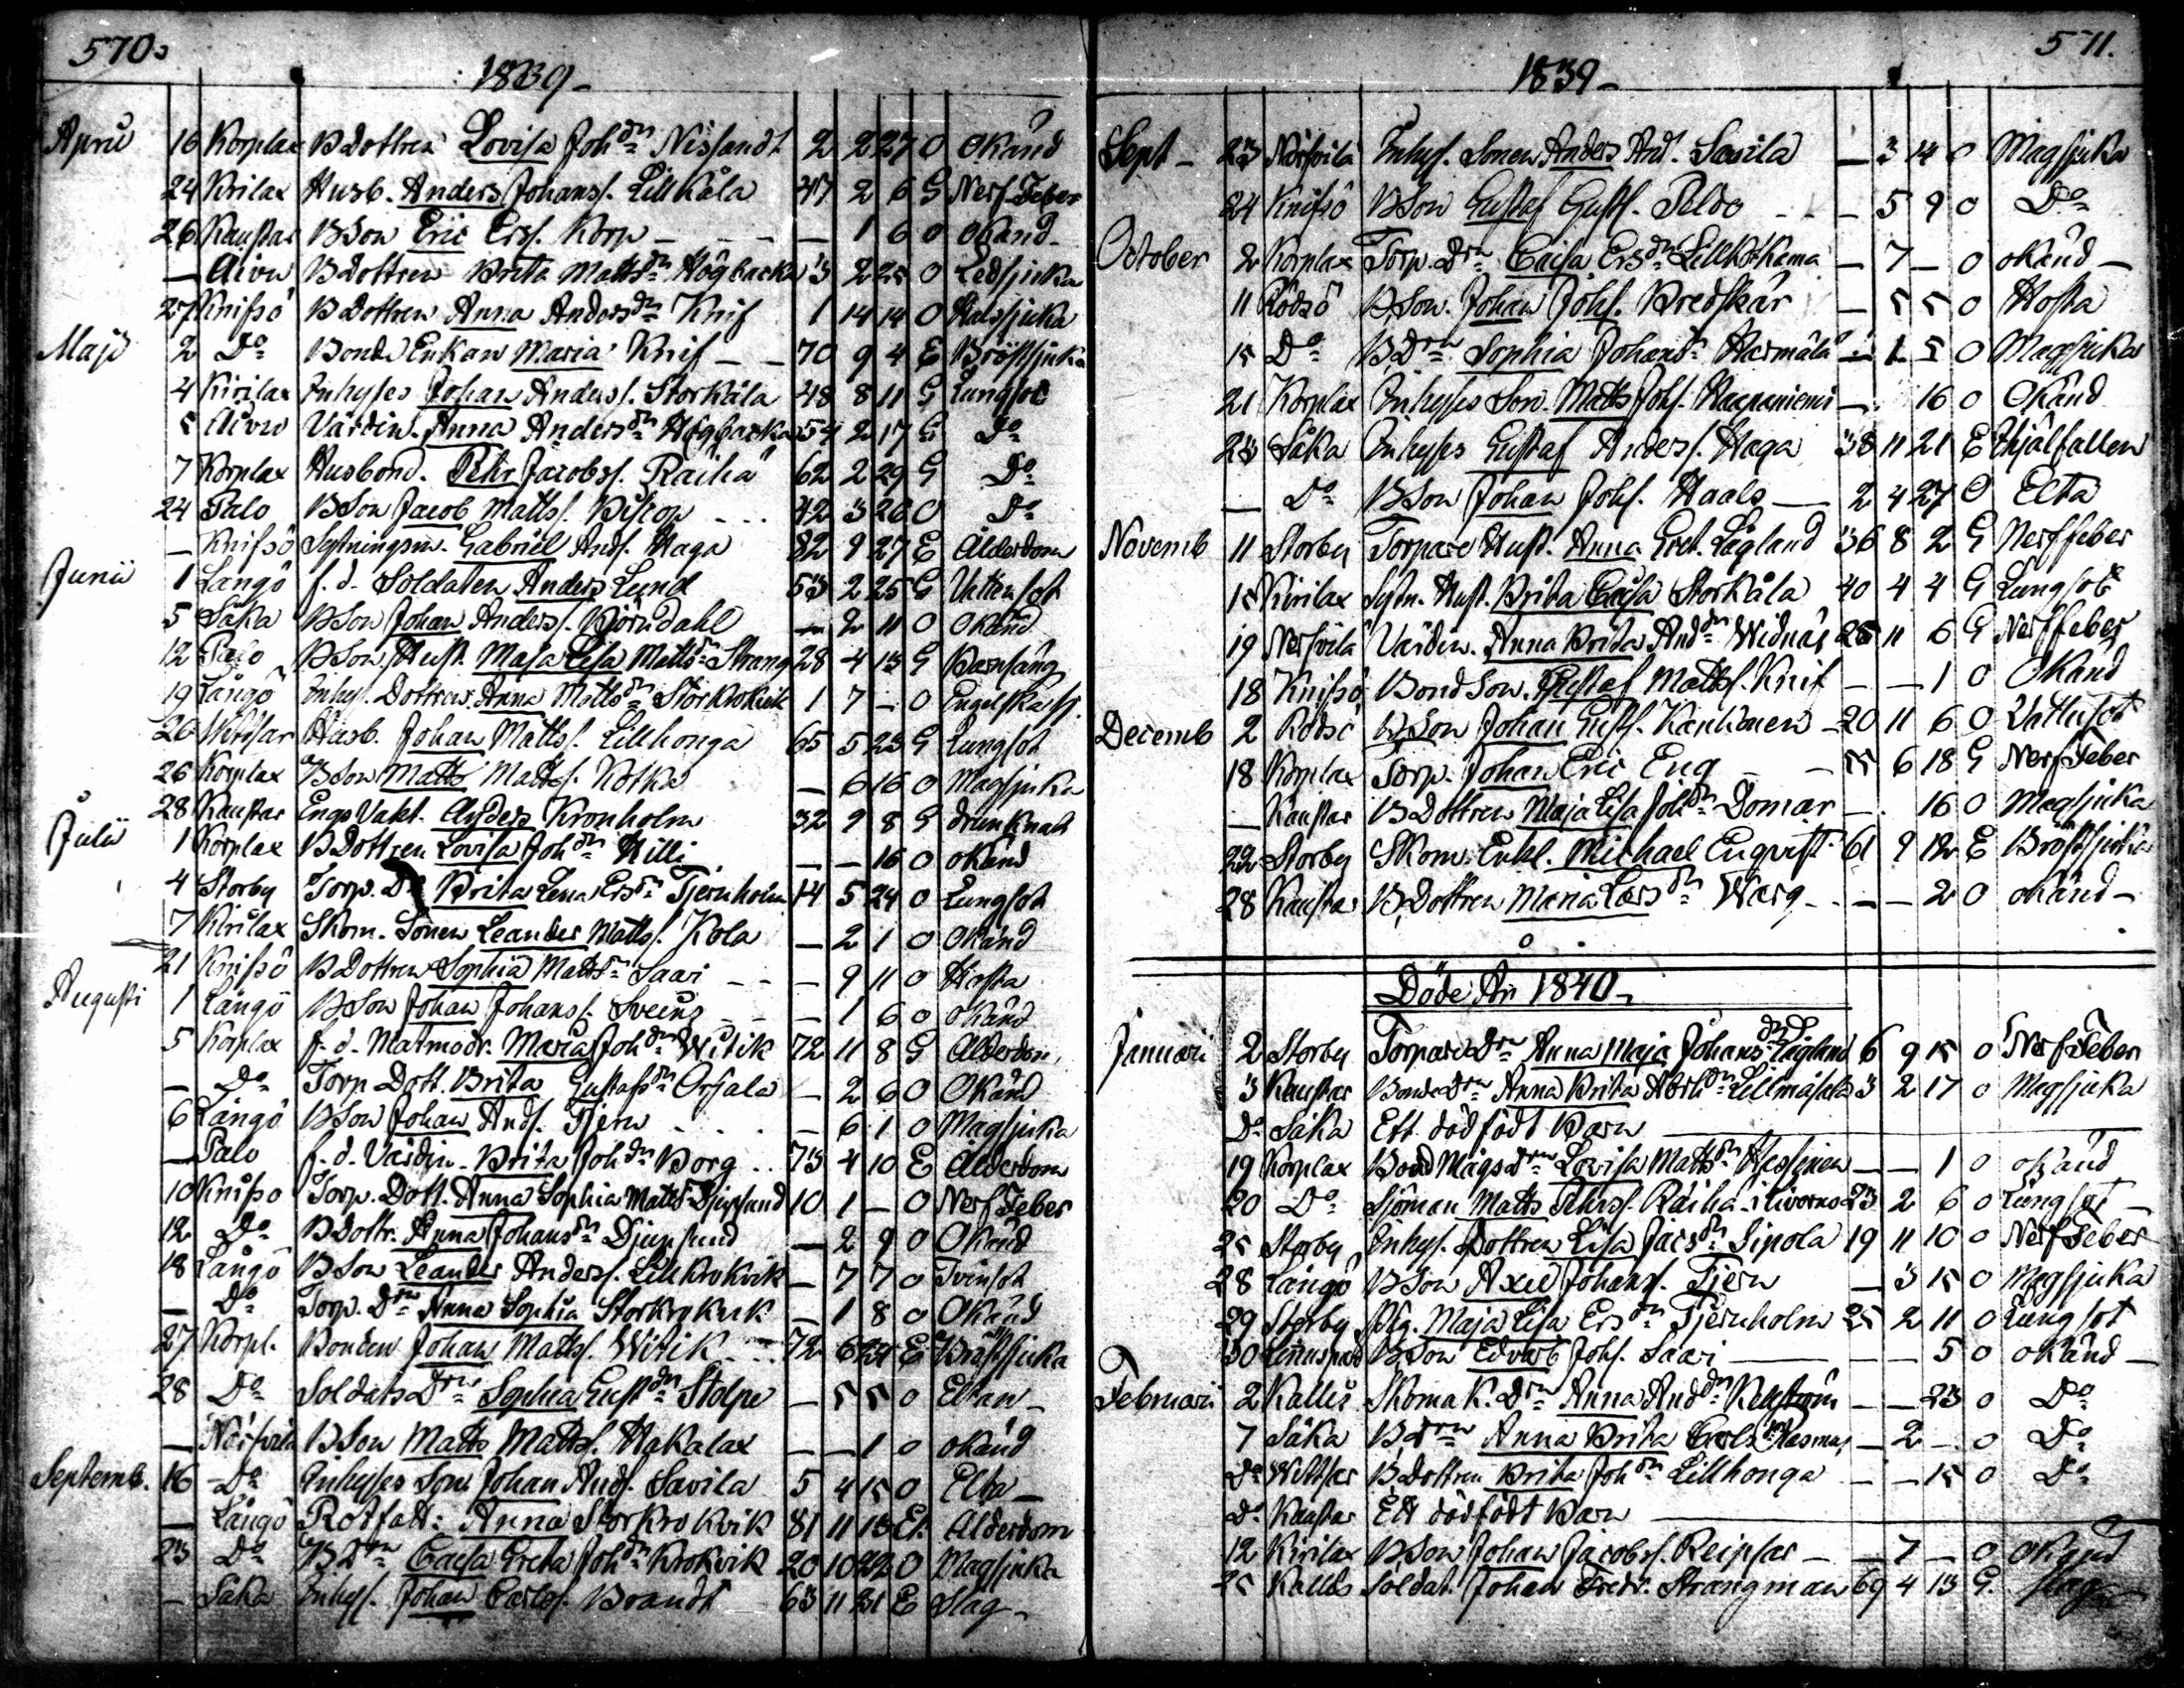 570.
1839.
April 16 Korplax BDottren Lovisa Johdr Nissandt 2 2 27 O Okänd
24 Kirilax Husb. Anders Johans. Lillkåla 47 2 6 G Nerf Feber
26 Kaustar BSon Eric Ers. Korp — 1 6 O Okänd
— Aivu BDottren Brita Mattsdr Högbacka 3 2 25 O Ledsjuka
27 Knifsö BDottren Anna Andersdr Knif 1 14 14 O Halssjuka
Maji 2 Do Bonde Enkan Maria Knif — 70 9 4 E Bröstsjuka
4 Kirilax Inhyses Johan Anders. Storkåla 48 8 11 G Lungsot
5 Aivu Värdin. Anna Andersdr Högbacka 54 2 17 G Do
7 Korplax Husbond. Pehr Jacobs. Raiha 62 2 29 G Do
24 Palo BSon Jacob Matts. Biskop 42 3 26 O Do
— Knifsö Sytningsm. Gabriel Ands. Haga 82 9 27 E Ålderdom
Junii 1 Långö f.d. Soldaten Anders Lund 53 2 25 G Vattusot
5 Såka BSon Johan Anders. Björndahl — 2 11 O Okänd
12 Palo BSon. Hust. Maja Lisa Mattsdr Strang 28 4 13 G Barnsäng
19 Långö Inhys. Dottren Anna Mattsdr Storkrokvik 1 7 — O Engelska sj.
20 Wittsar Husb. Johan Matts. Lillhonga 65 5 23 G Lungsot
26 Korplax BSon Matts Matts. Kotka — 6 16 O Magsjuka
28 Kaustar Engs Vakt. Anders Kronholm 32 9 8 G drunknat
Julii 1 Korplax BDottren Lovisa Johdr Killi — — 16 O okänd
4 Storby Torp. Dr Brita Lena Ersdr Tjernholm 14 5 24 O Lungsot
7 Kirilax Skom. Sonen Leander Matts. Kola — 2 1 O Okänd
21 Knifsö BDottren Sophia Mattsdr Saari — 9 11 O Hosta
Augusti 1 Långö BSon Johan Johans. Sveins — 1 6 O Okänd
5 Korplax f.d. Matmodr. Maria Johdr Witik 72 11 8 G Ålderdom
— Do Torp Dott. Brita Gustafsdr Orjala — 2 6 O Okänd
6 Långö BSon Johan Ands. Tjern — 6 1 O Magsjuka
— Palo f.d. Värdin. Brita Johdr Borg 73 4 10 E Ålderdom
10 Knifsö Torp. Dott. Anna Sophia Mattsdr Djupsund 10 1 — O Nerf Feber
12 Do BDottr. Anna Johansdr Djupsund — 2 9 O Okänd
18 Långö BSon Leander Anders. Lillkrokvik — 7 7 O Tvinsot
— Do Torp. Drn Anna Sophia Storkrokvik — 1 8 O Okänd
27 Korpl. Bonden Johan Matts. Witik 72 6 24 E Bröstsjuka
28 Do Soldats Drn Sophia Gustdr Stolpe — 5 5 O Eltan
— Närvilä BSon Matts Matts. Hakalax — — 1 O okänd
Septemb. 16 Do Inhyses Son Johan Ands. Savila 5 4 15 O Elta
— Långö Rotfatt: Anna Storkrokvik 81 11 13 E Ålderdom
23 Do B Drn Caisa Greta Johdr Krokvik 20 10 22 O Magsjuka
— Såka Inhys. Johan Carls. Brandt 63 11 21 E Slag
571.
1839
Sept 23 Närvilä Inhys. Sonen Anders And. Savila — 3 14 O Magsjuka
24 Knifsö BSon Gustaf Gusts. Peldo — 5 9 O Do
October 2 Korplax Torp. Drn Caisa Ersdr Lillkotkama — 7 — O okänd
11 Rödsö BSon. Johan Johs. Bredskär — 5 5 O Hosta
15 Do B Drn Sophia Johansdr Harmälä — 1 5 O Magsjuka
21 Korplax Inhyses Son. Matts Johs. Haapaniemi — 16 O Okänd
23 Såka Inhyses Gustaf Anders. Haga 38 11 21 E Ihjälfallen
— Do BSon Johan Johs. Haals — 2 4 27 O Elta
Novemb 11 Storby Torpare Hust. Anna Gret. Lågland 36 8 2 G Nerffeber
15 Kirilax Sytn. Hust. Brita Caisa Storkåla 40 4 4 G Lungsot
19 Nerfvilä Värdin. Anna Brita Anddr Widnäs 25 11 6 G Nerffeber
18 Knifsö Bond Son. Gustaf Matts. Knif — — 1 O Okänd
Decemb 2 Rödsö BSon Johan Gusts. Kankonen 20 11 6 O Vattusot
18 Korplax Torp. Johan Eric Eng — 55 6 18 G Nerf Feber
— Kaustar BDottren Maja Lisa Johdr Domar — 16 O Magsjuka
22 Storby Skom. Enkl. Michael Enqvist 61 9 12 E Bröstsjuka
28 Kaustar B. Dottren Maria Larsdr Warg — — 2 O okänd
Döde År 1840
Januari 2 Storby Torpare Drn Anna Maja Johansdr Lågland 6 9 15 O Nerf Feber
3 Kaustar Bonde Drn Anna Brita Abrhdr Lillmåsala 3 2 17 O Magsjuka
Do Såka Ett dödfödt Barn
19 Korplax Bond Mågs Drn Lovisa Mattsdr Hessinen — — 1 O okänd
20 Do Sjöman Matts Pehrs. Räihä i Livorno 23 2 6 O Lungsot
25 Storby Inhys. Dottren Lisa Jacsdr Sipola 19 11 10 O Nerf Feber
28 Långö BSon Axel Johans. Tjern — 3 15 O Magsjuka
29 Storby Pig. Maja Lisa Ersdr Tjernholm 25 2 11 O Lungsot
30 BSon Edvard Johs. Saari — — 5 O okänd
Februari 2 Kallis Skomak. Drn Anna Anddr Kellström — — 23 O Do
7 Såka B Drn Anna Brita Carlsdr Rasmus — 2 — O Do
Do Wittsar B. Dottren Brita Johdr Lillhonga — — 15 O Do
Do Kaustar Ett dödfödt Barn
12 Kirilax BSon Johan Jacobs. Reipsar — 7 — O Okänd
25 Kallis Soldat. Johan Fredr. Strangman 69 4 13 G. Slag